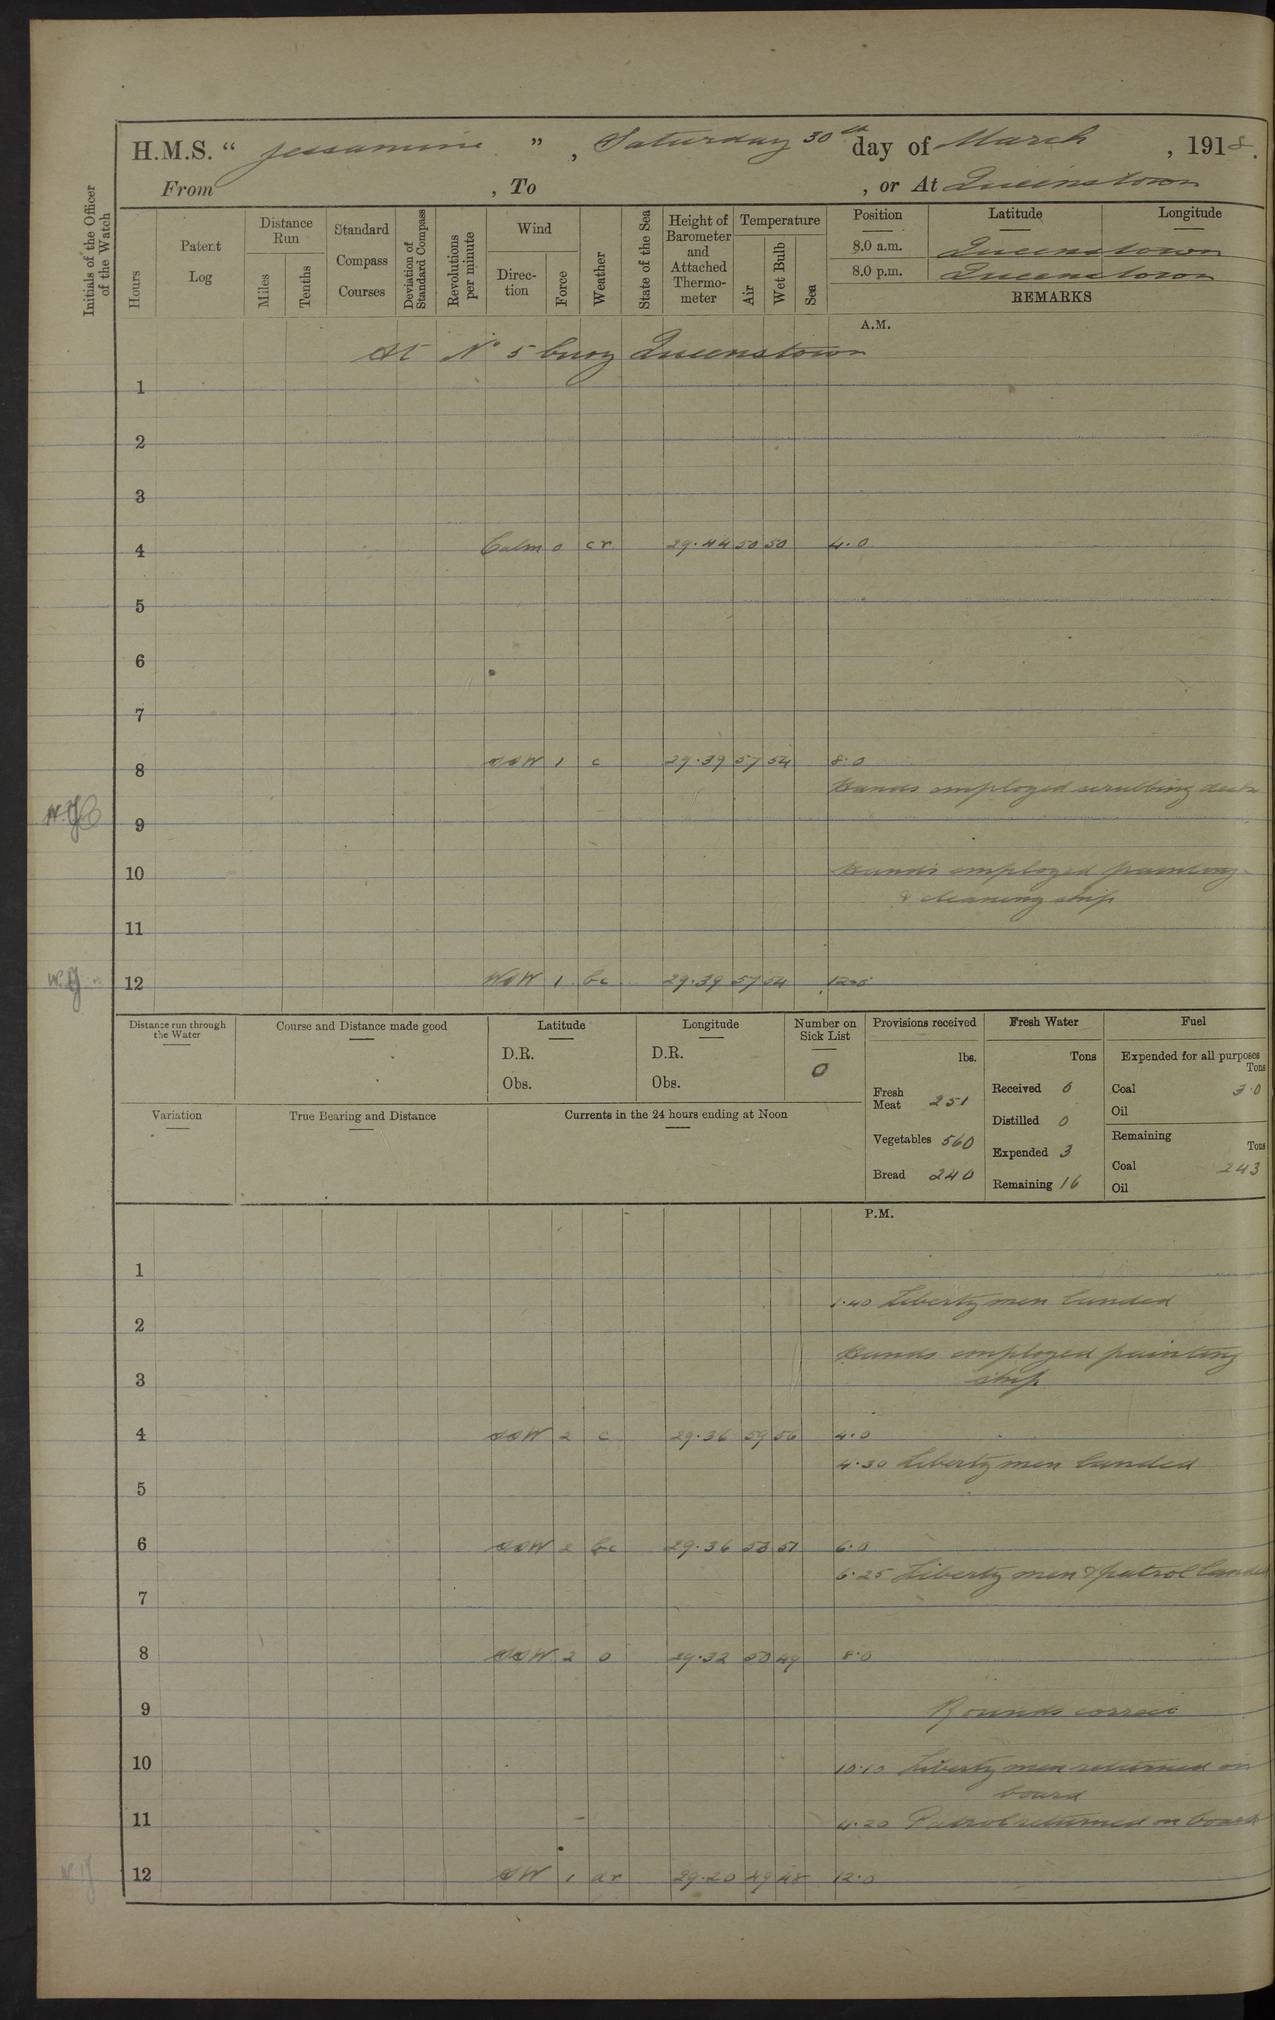 H.M.S. “ Jessamine ” , Saturday 30th day of March , 1918.
From , To , or At Queenstown
Initials of the Officer of the Watch
Hours
Patent Log
Distance Run
Miles
Tenths
Standard Compass Courses
Deviation of Standard Compass
Revolutions per minute
Wind
Direc-tion
Force
Weather
State of the Sea
Height of Barometer and Attached Thermo-meter
Temperature
Air
Wet Bulb
Sea
Position Latitude Longitude
8.0 a.m. Queenstown
8.0 p.m. Queenstown
REMARKS
A.M.
At No 5 buoy Queenstown
1
2
3
4 Calm 0 cr 29.44 50 50 4.0
5
6
7
8 SSW 1 c 29.39 57 54 8.0
Hands employed scrubbing decks
9
10 Hands employed painting
& cleaning ship
11
12 WSW 1 bc 29.39 57 54
Distance run through the Water
Course and Distance made good
Latitude
D.R.
Obs.
Longitude
D.R.
Obs.
Number on Sick List
0
Provisions received
lbs.
Fresh Meat 251
Vegetables 560
Bread 240
Fresh Water
Tons
Received 0
Distilled 0
Expended 3
Remaining 16
Fuel
Expended for all purposes
Tons
Coal 3.0
Oil
Remaining
Tons
Coal 243
Oil
Variation
True Bearing and Distance
Currents in the 24 hours ending at Noon
P.M.
1
1.40 Liberty men landed
2
Hands employed painting
3 ship
4 SSW 2 c 29.36 59 56 4.0
4.30 Liberty men landed
5
6 SSW 2 bc 29.36 53 51 6.0
6.25 Liberty men & patrol landed
7
8 SSW 2 o 29.32 50 49 8.0
9 Rounds correct
10 10.10 Liberty men returned on
board
11 4.20 Patrol returned on board
12 SW 1 dr 29.20 49 48 12.0